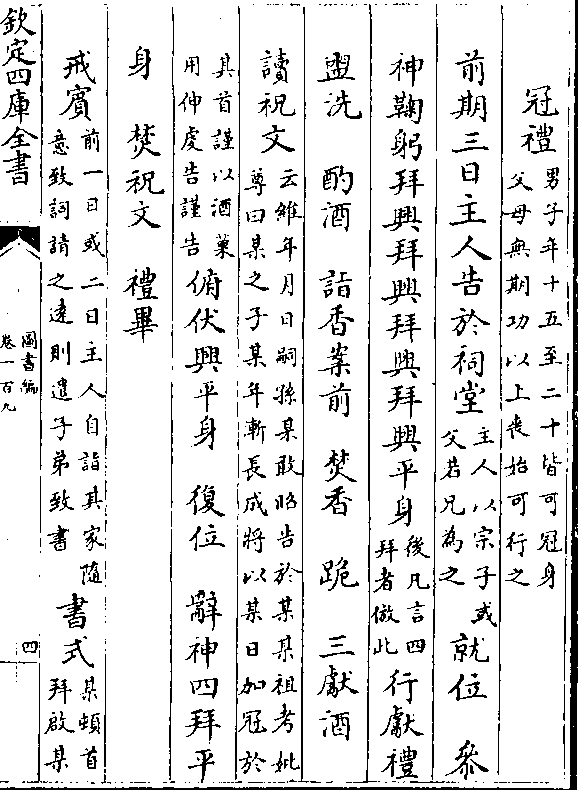 冠禮男子年十五至二十皆可冠身父母無期功以上喪始可行之
前期三日主人告於祠堂主人以宗子或父若兄為之就位 叅
神鞠躬拜興拜興拜興拜興平身後凡言四拜者倣此行獻禮
盥洗 酌酒 詣香案前 焚香 跪 三獻酒
讀祝文云維年月日嗣孫某敢昭告於某某祖考妣尊曰某之子某年漸長成將以某日加冠於
其首謹以酒菓用伸虔告謹告俯伏興平身 復位 辭神四拜平
身 焚祝文 禮畢
戒賓前一日或二日主人自詣其家隨意致詞請之逺則遣子弟致書書式某頓首拜啟某
欽定四庫全書
圖書編
卷一百九
四